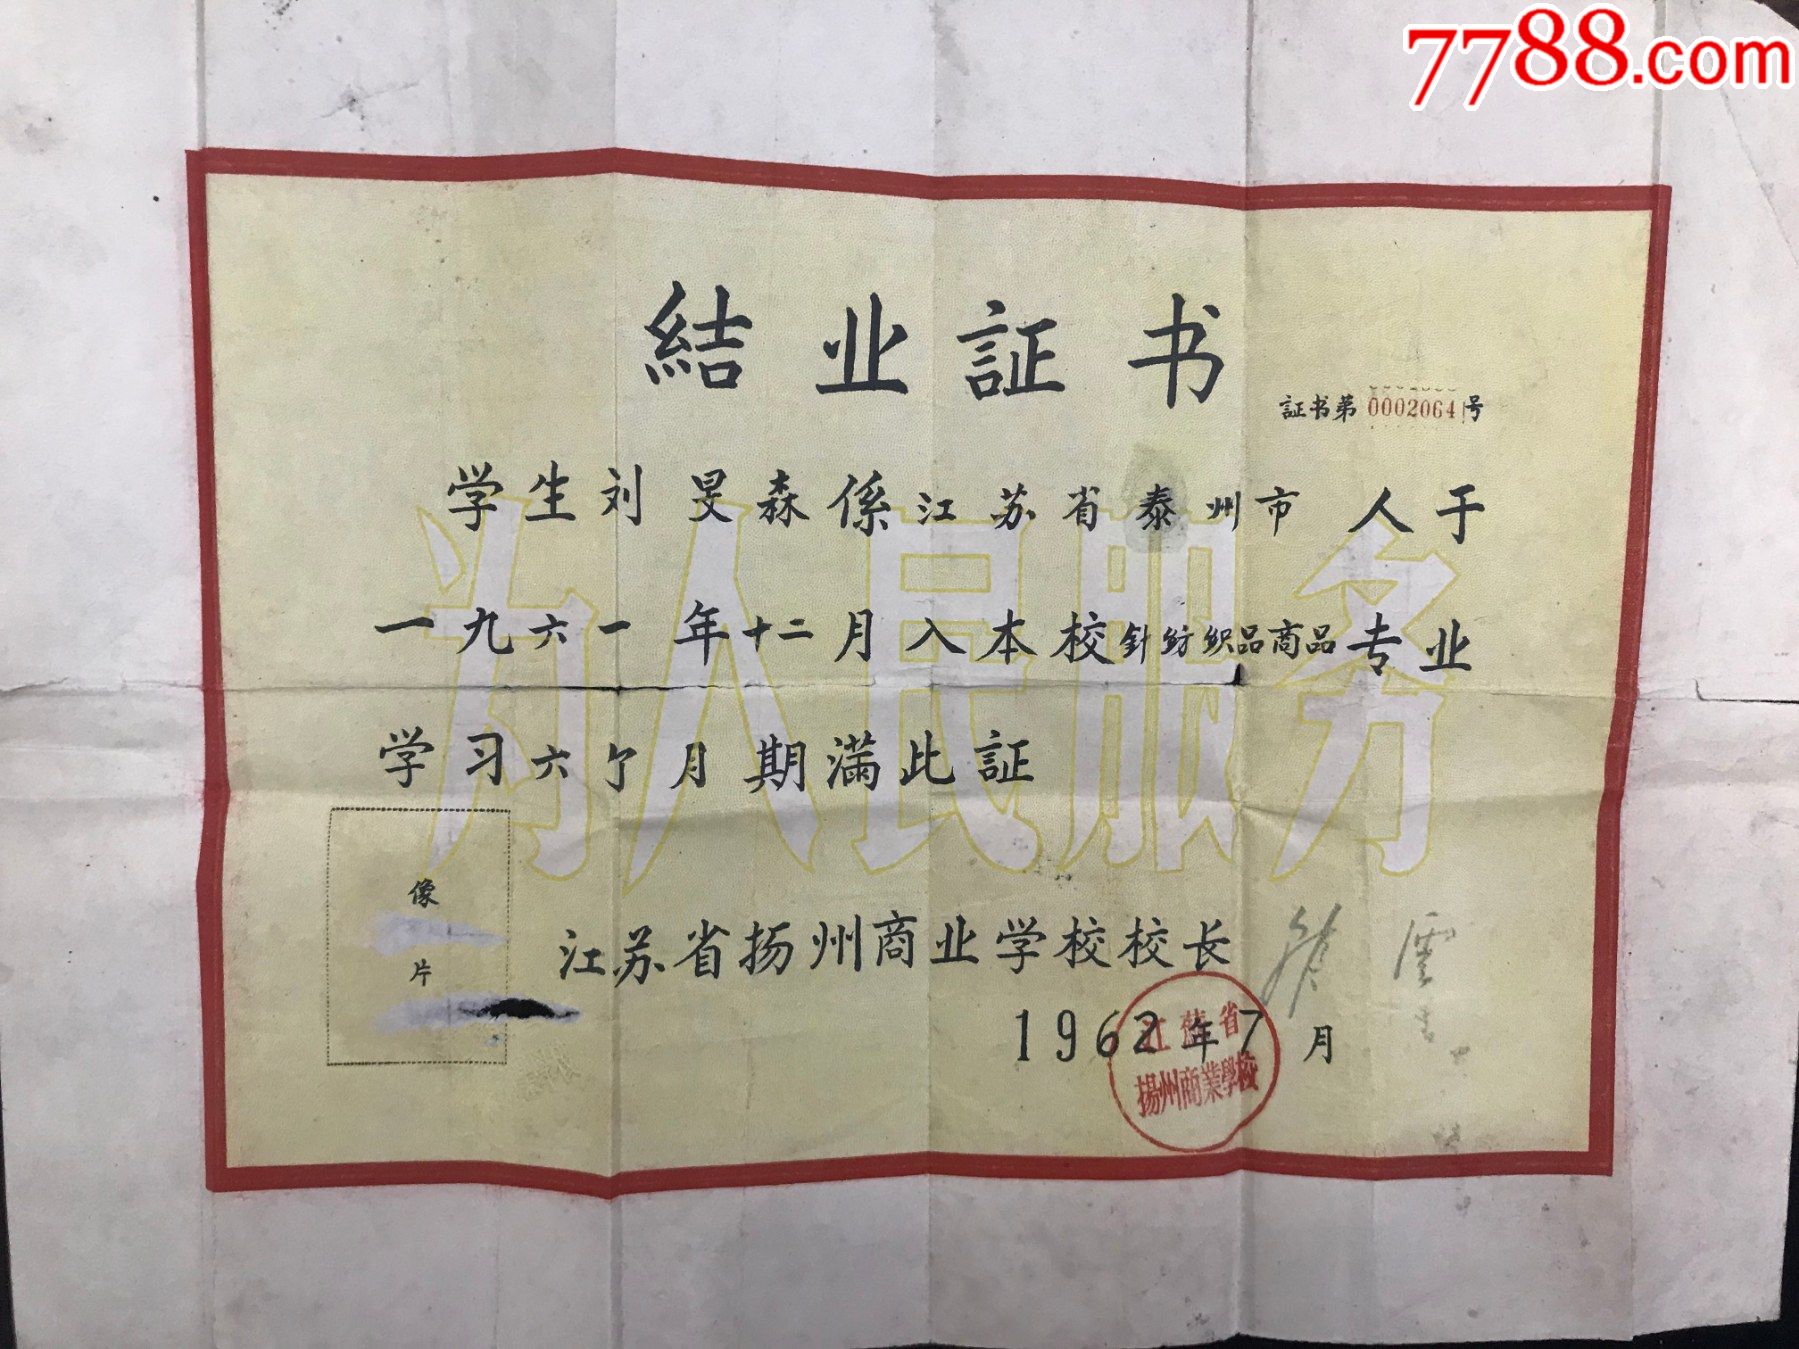 7788.com
結业証书
証书第0002064号
学生刘旻森係江苏省泰州市人于
一九六一年十二月入本校針纺织品商品专业
学习六个月期滿此証
为人民服务
像
片
江苏省扬州商业学校校长
1962年7月
江蘇省
揚州商業學校